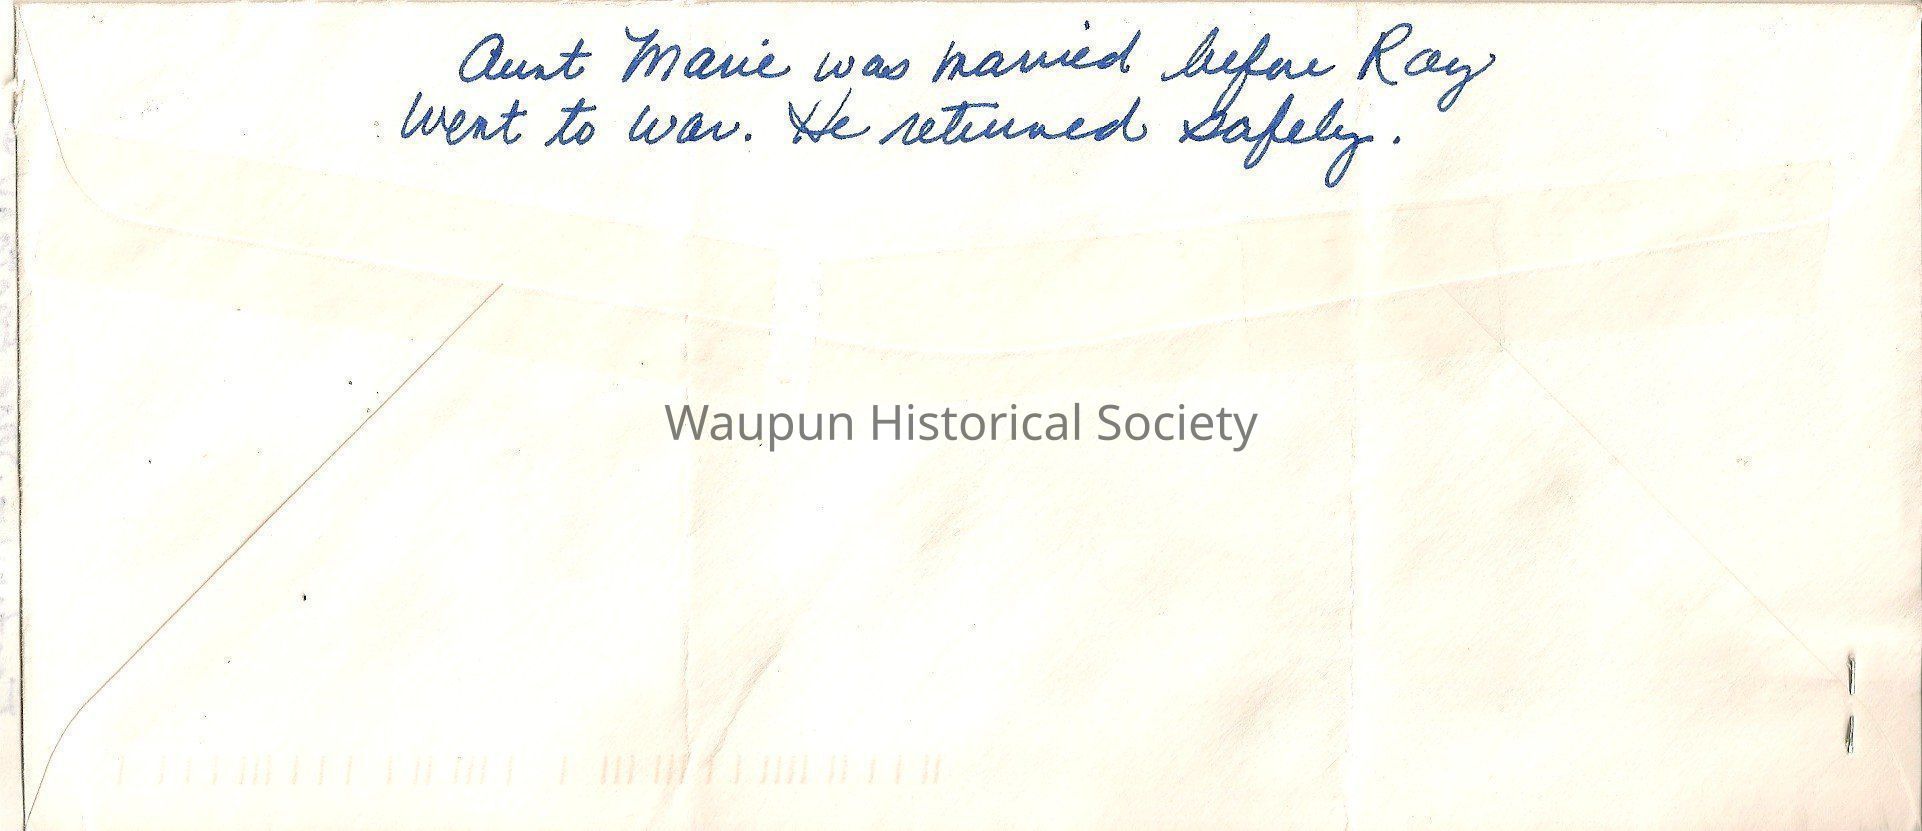 Aunt Marie was married before Ray
went to war. He returned safely.
Waupun Historical Society